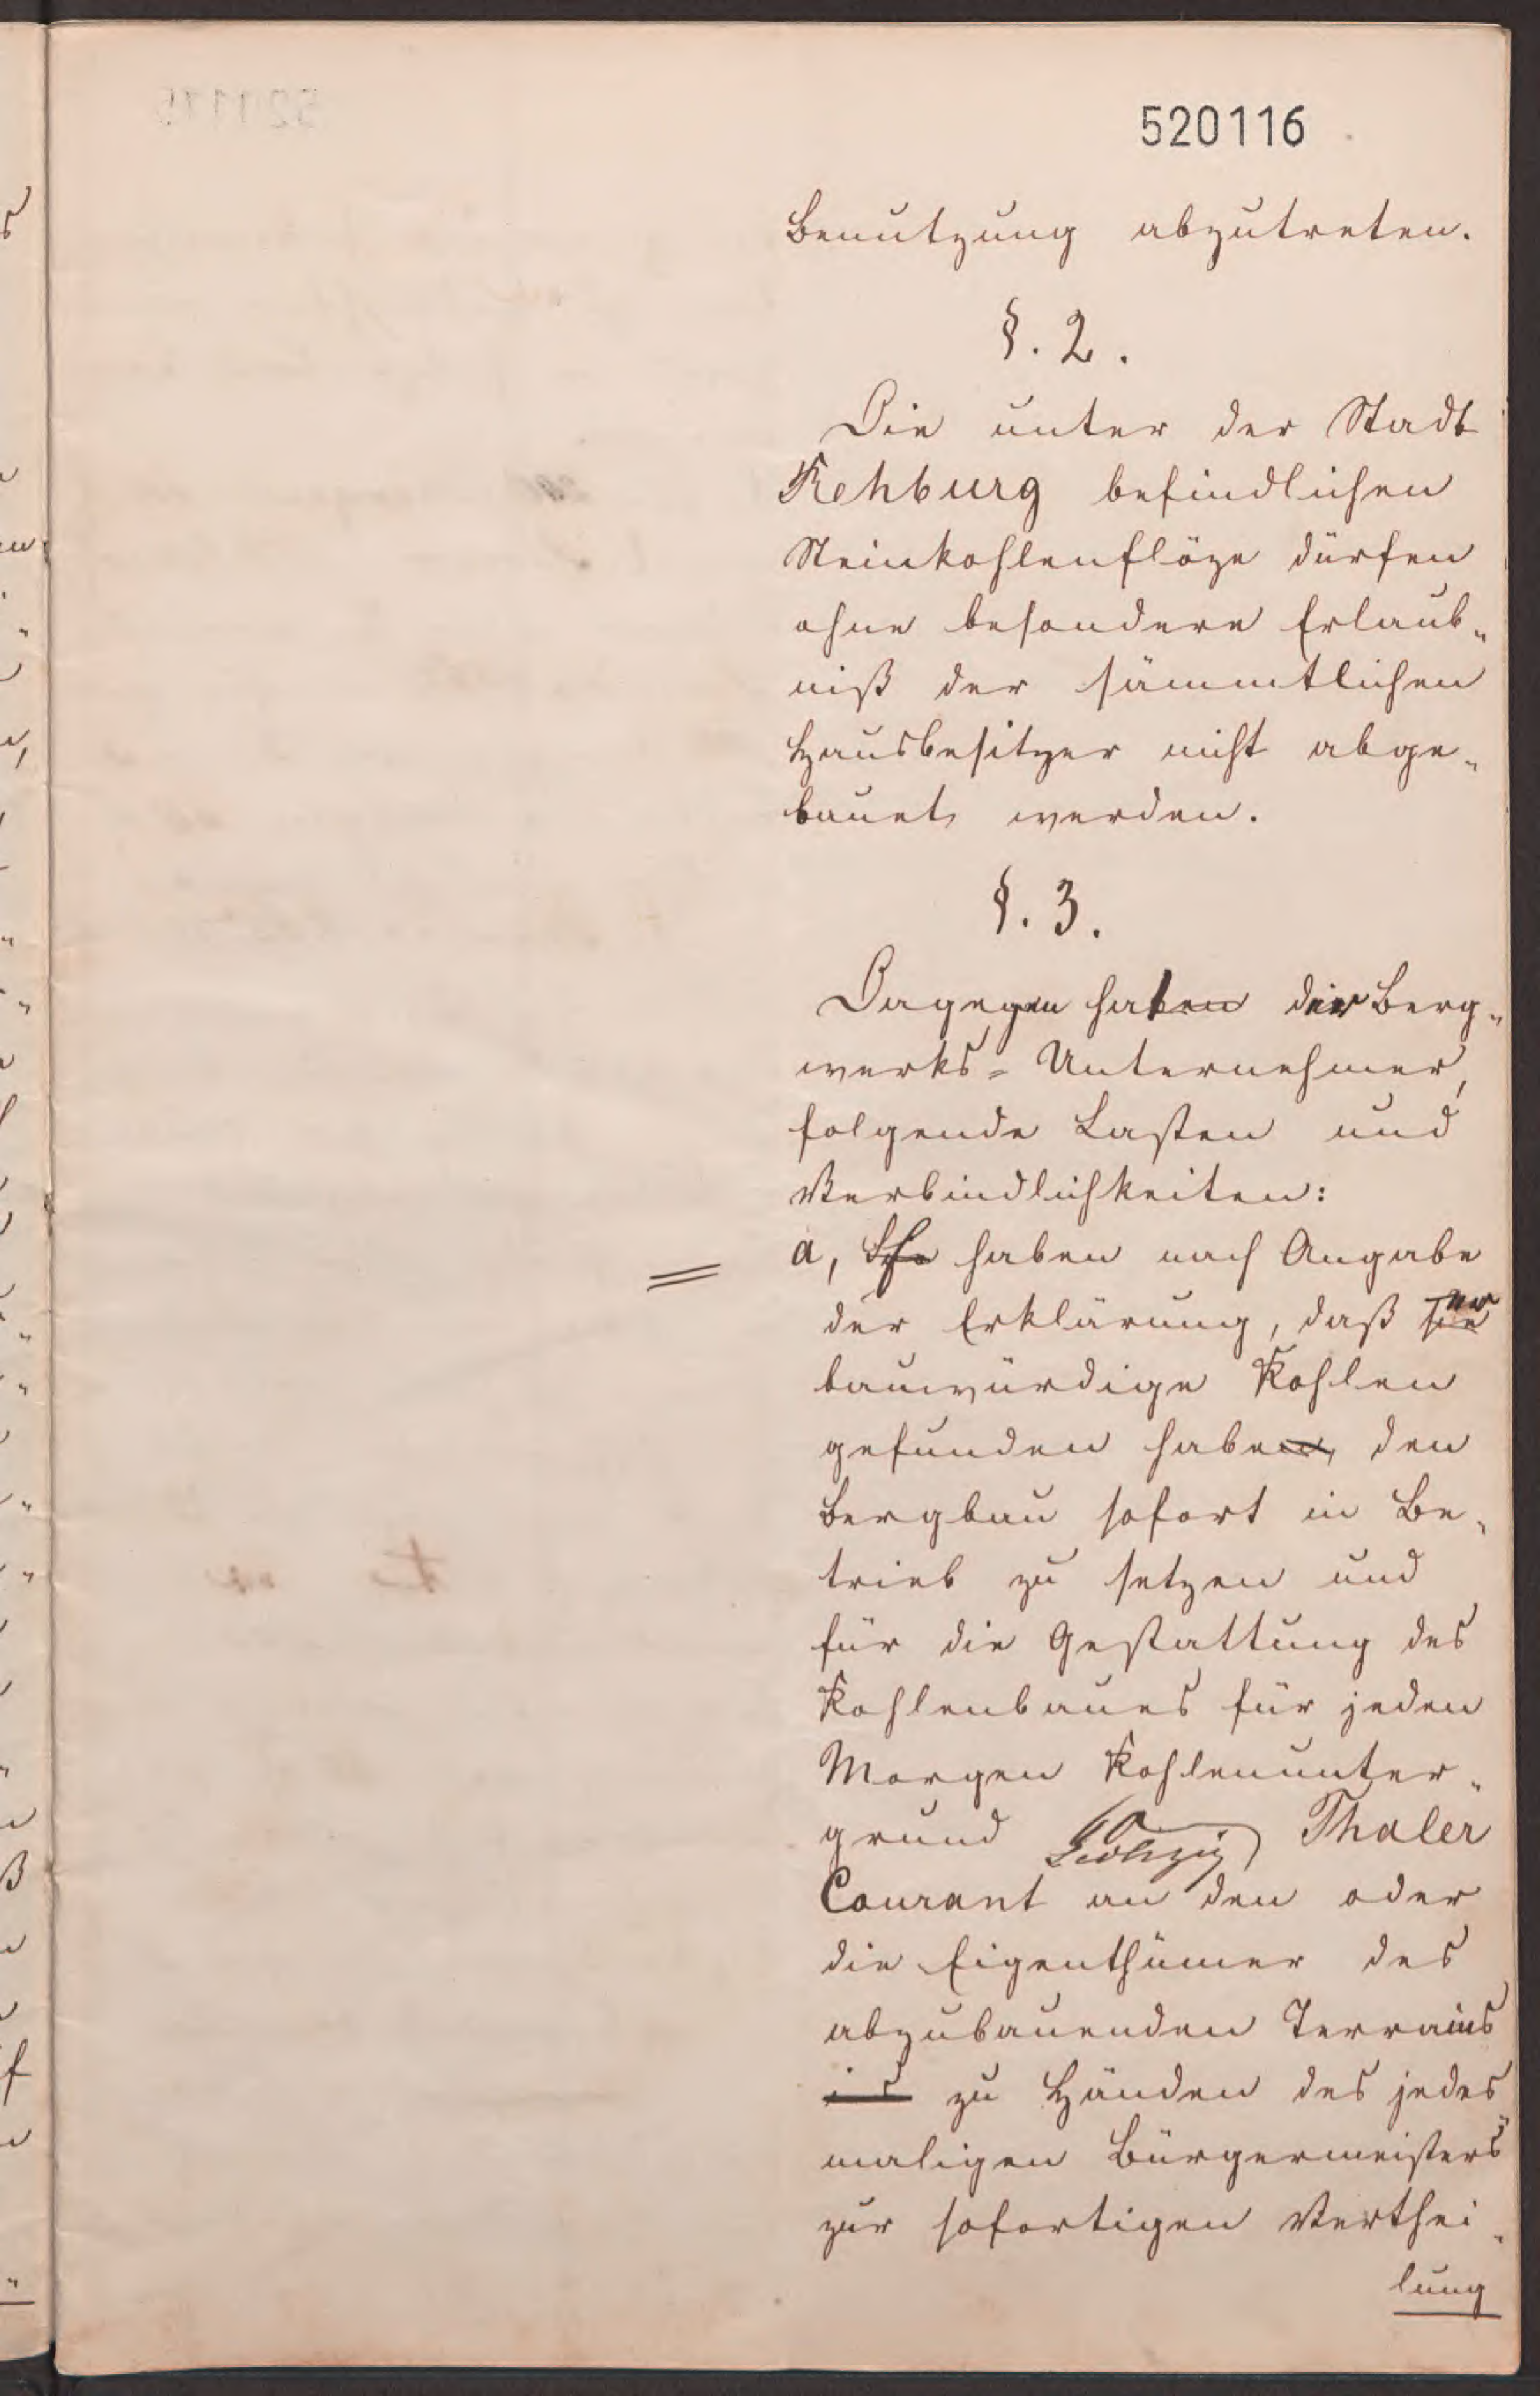 520116
Benutzung abzutreten.
§. 2.
Die unter der Stadt
Rehburg befindlichen
Steinkohlenflöze dürfen
ohne besondere Erlaub„
niß der sämmtlichen
Hausbesitzer nicht abge„
bauet werden.
§. 3.
Dagegen hat der Berg„
werks-Unternehmer,
folgende Lasten und
Verbindlichkeiten:
a, haben nach Angabe
der Erklärung, daß er
bauwürdige Kohlen
gefunden habe, den
Bergbau sofort in Be„
trieb zu setzen und
für die Gestattung des
Kohlenbaues für jeden
Morgen Kohlenunter„
grund 60 Sechzig Thaler
Courant an den oder
die Eigenthümer des
abzubauenden Terrains
zu Händen des jedes„
maligen Bürgermeisters
zur sofortigen Verthei„
lung